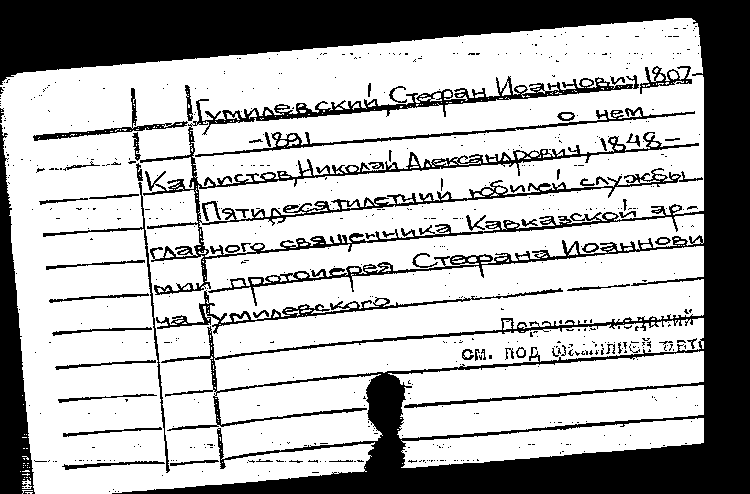 Гумилевский, Стефан Иоаннович, 1807-
-1891 о нем
Каллистов, Николай Александрович, 1848-
Пятидесятилетний юбилей службы
главного священника Кавказской ар-
мии протоиерея Стефана Иоаннови
ча Гумилевского.
Перечень изданий
см. под фамилией авто